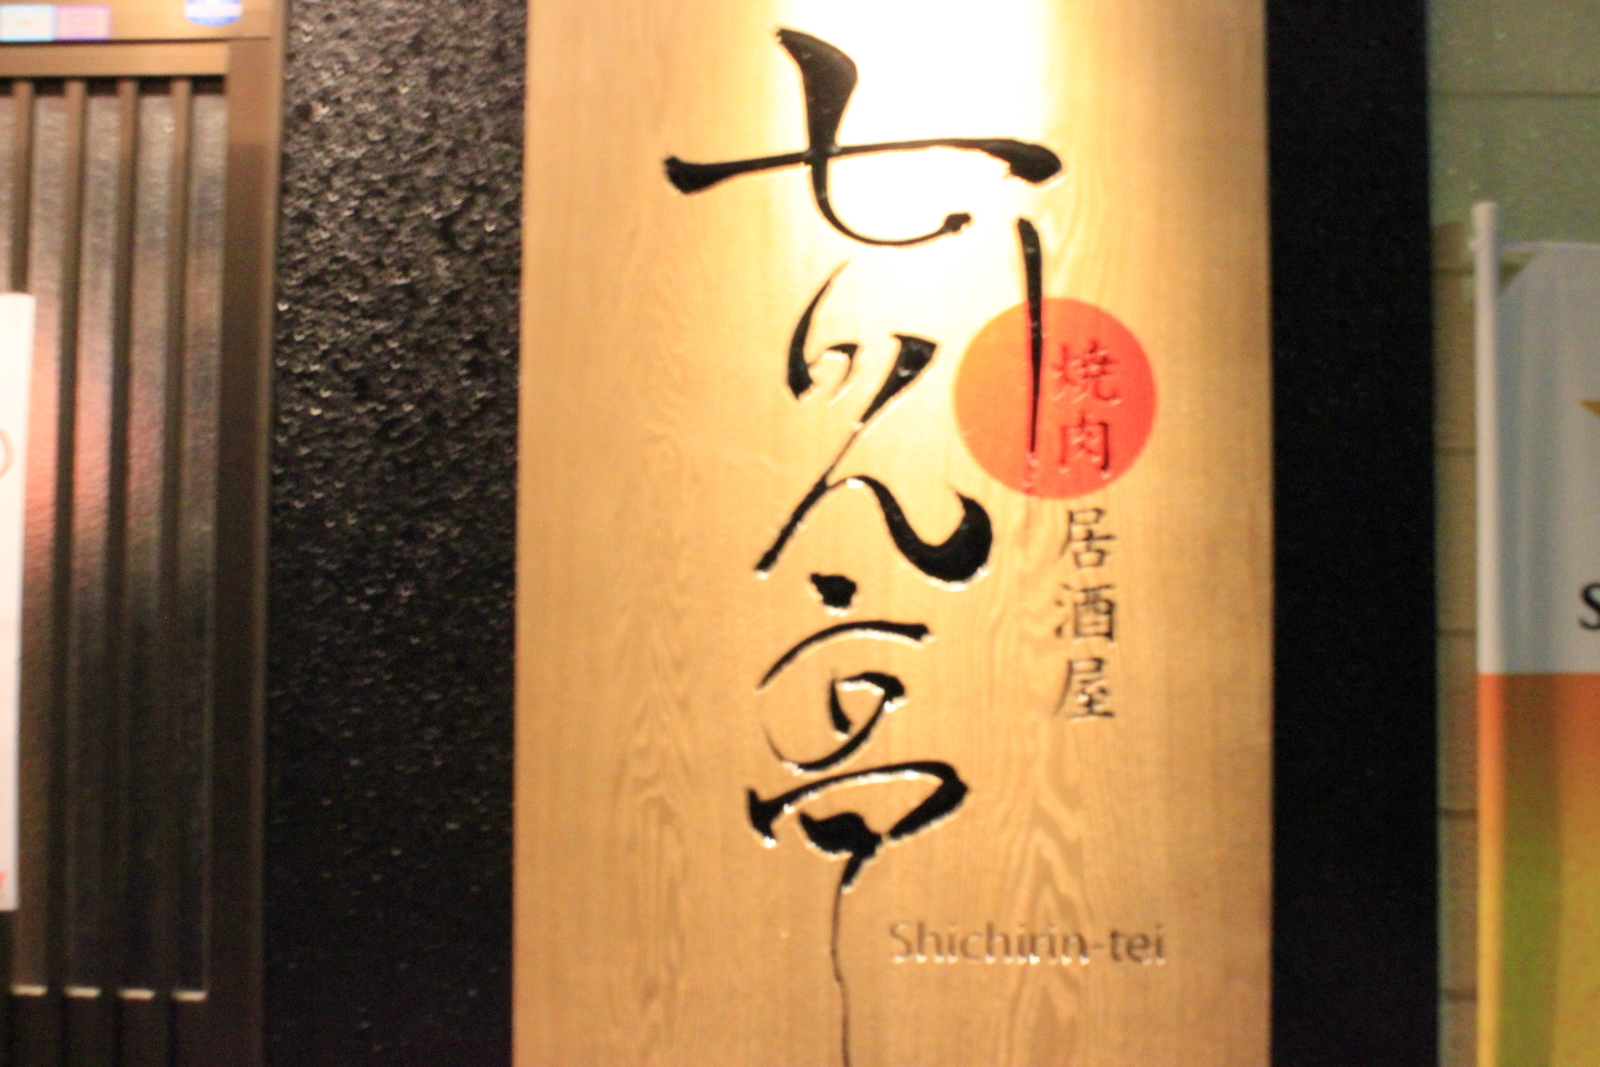 七りん亭
焼肉
居酒屋
Shichirin-tei
S